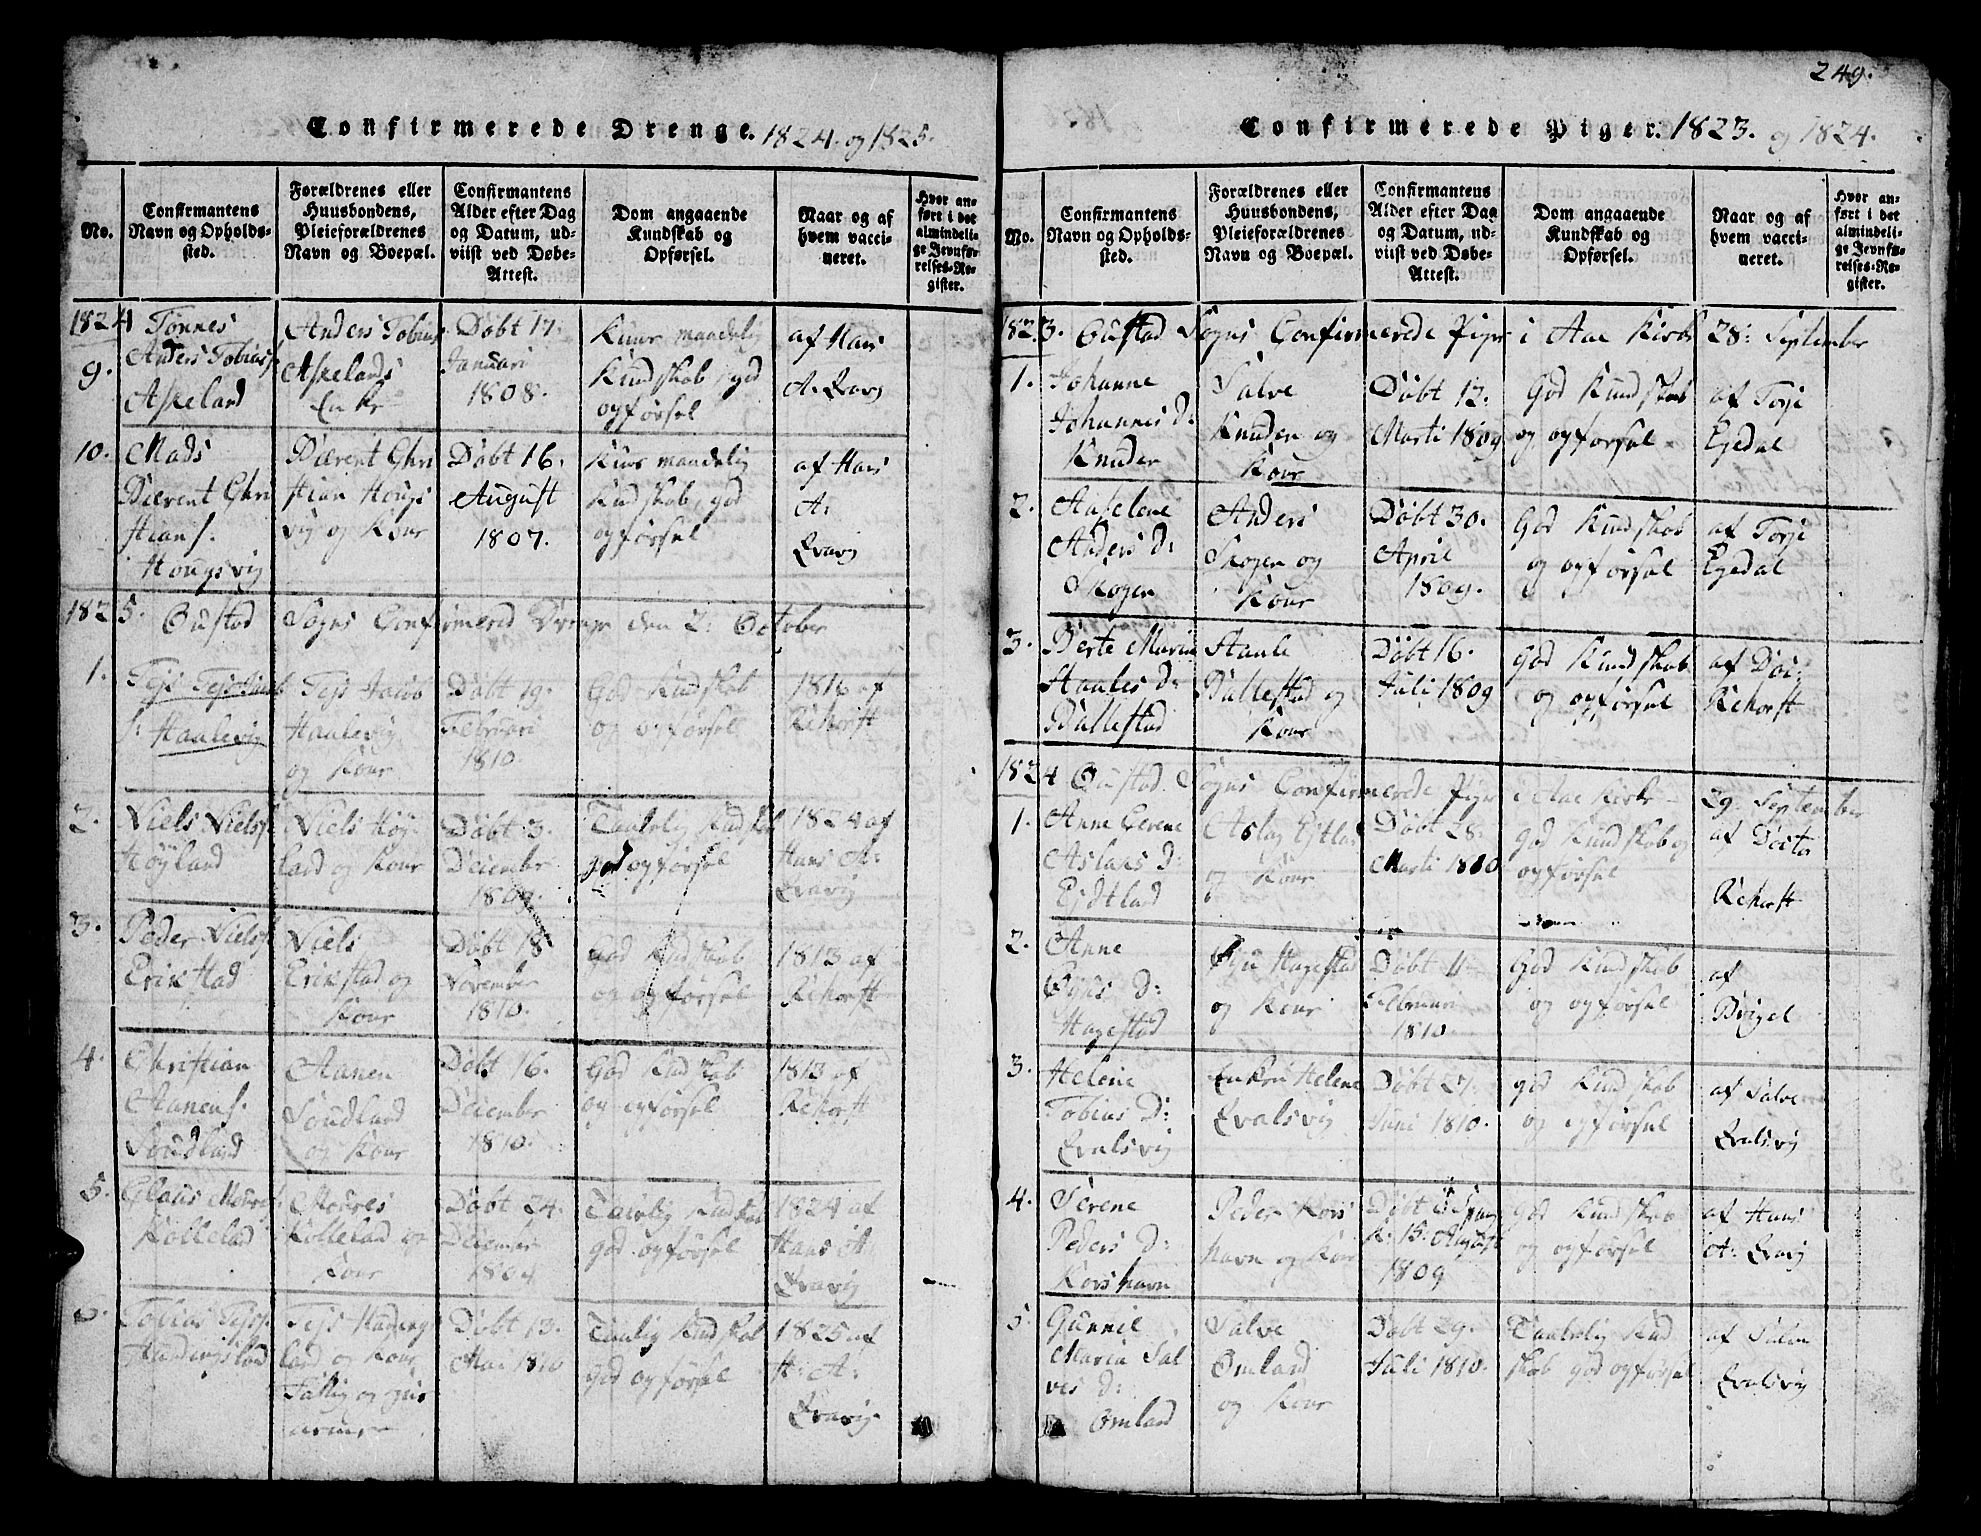 249.
Confirmerede Drenge. 1824. og 1825.
No.
Confirmantens Navn og Opholds-sted.
Forældrenes eller Huusbondens, Pleieforældrenes Navn og Boepæl.
Confirmantens Alder efter Dag og Datum, ud-viist ved Døbe-Attest.
Dom angaaende Kundskab og Opførsel.
Naar og af hvem vacci-neret.
Hvor an-ført i det almindeli-ge Jevnfø-relses-Re-gister.
1824
9.
Tønnes
Anders Tobias
Askeland
Anders Tobias
Askelands
Enke
Døbt 17.
Januari
1808.
maadelig
Kundskab, god
opførsel
af Hans
A. Qvavig
10.
Mads
Bærent Chri
stian s.
Hougsvig
Bærent Chri
stian Hougs
vig og Kone
Døbt 16.
August
1807.
maadelig
Kundskab, god
opførsel
af Hans
A:
Qvavig
1825. Oustad Sogns Confirmered Drenge den 2: October
1.
s: Haaleviig
Jacob
Haalevig
og Kone
Døbt 19.
Februari
1810.
God Kundskab
og opførsel
1816 af
Rehorst
2.
Niels Niels s.
Høyland
Niels Høy-
land og Kone
Døbt 3.
December
1809.
Taalelig Kundskab
god opførsel
1824 af
Hans A:
Qvavig
3.
Peder Niels s.
Erikstad
Niels
Erikstad og
Kone
Døbt 18
November
1810.
God Kundskab
og opførsel
1813 af
Rehorst
4.
Christian
Aanen s.
Soudland
Aanen
Soudland
og Kone
Døbt 16.
December
1810.
God Kundskab
og opførsel
1813 af
Rehorst
5.
Claus
Kolleland
Kolleland og
Kone
Døbt 24.
December
Taalelig Kundskab
god opførsel
1824 af
Hans A:
Qvavig
6.
Tobias
og Kone
Døbt 13.
Mai 1810
Taalelig Kundskab
god opførsel
1825 af
H: A:
Qvavig.
Confirmerede Piger. 1823. og 1824.
No.
Confirmantens Navn og Opholds-sted.
Forældrenes eller Huusbondens, Pleieforældrenes Navn og Boepæl.
Confirmantens Alder efter Dag og Datum, ud-viist ved Døbe-Attest.
Dom angaaende Kundskab og Opførsel.
Naar og af hvem vacci-neret.
Hvor an-ført i det almindeli-ge Jevnfø-relses-Re-gister.
1823. Oustad Sogns Confirmerede Piger i Aae Kirke 28: September
1.
Johanne
Johannes D:
Knuden
Salve
Knuden og
Kone
Døbt 12.
Marti 1809
God Kundskab
og opførsel
af Torje
Egedal
2.
Aaselene
Anders D:
Skogen
Anders
Skogen og
Kone
Døbt 30.
April
1809.
God Kundskab
og opførsel
af Torje
Egedal
3.
Berte Marie
Staales D:
Ballestad
Staale
Ballestad og
Kone
Døbt 16.
Juli 1809
God Kundskab
og opførsel
af Doc:
Rehorst
1824 Oustad Sogns Confirmerede Piger i Aae Kirke 29. September
1.
Anne Serene
Aslags D:
Eftland
Aslag Eftland
og Kone
Døbt 28.
Marti 1810
God Kundskab og
opførsel
af Doctor
Rehorst
2.
Anne
D:
Hagestad
Hagestad
og Kone
Døbt 11
Februari
1810
God Kundskab
og opførsel
af
3.
Helene
Tobias D:
Qvalsvig
Enken Helene
Qvalsvig
Døbt 27.
Juni 1810.
god Kundskab
og opførsel
af Salve
Qvalsvig
4.
Serene
Peders D:
Korshavn
Peder Kors
havn og Kone
Døbt i Spang
K. 13. August
1809
God Kundskab
og opførsel
af Hans
A: Qvavig
5.
Gunnil
Maria Sal
ves D:
Omland
Salve
Omland
og Kone
Døbt 29.
Juli 1810.
Taalelig Kund
skab god opførsel
af Salve
Qvalsvig